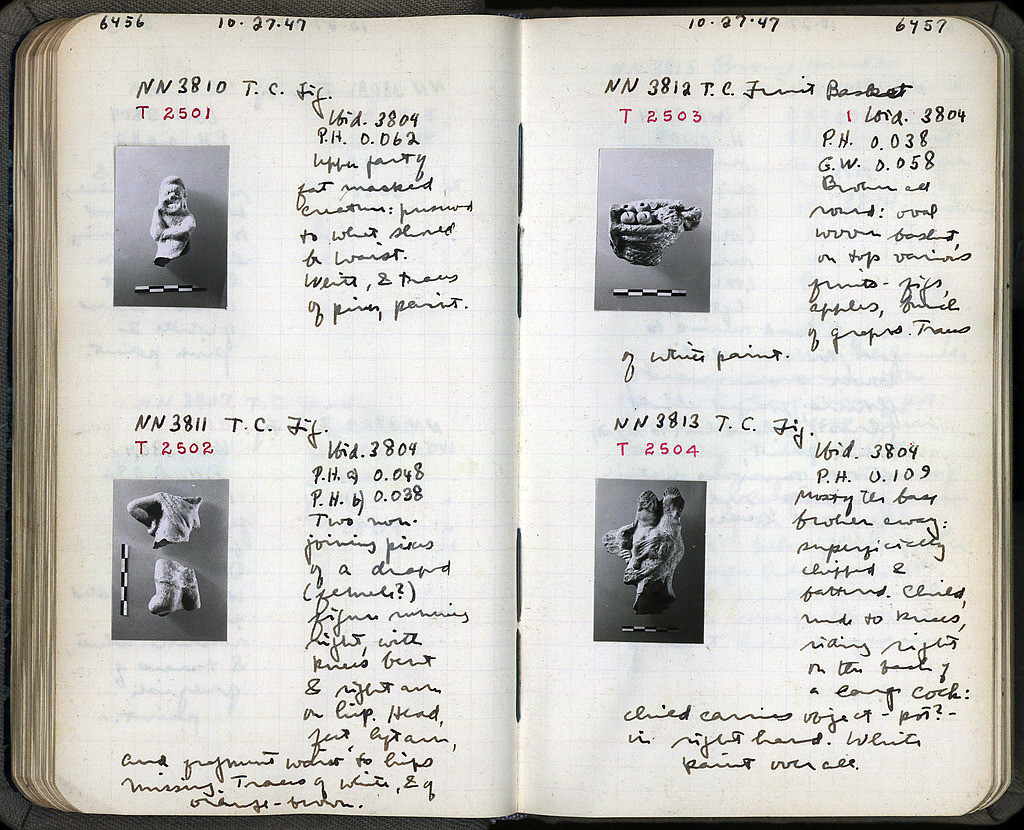 6456 10-27-47
NN 3810 T. C. Fig.
T 2501
Ibid. 3804
P.H. 0.062
Upper part of
fat masked
creature: preserved
to what should
be waist.
White, & traces
of pink, paint.
NN 3811 T. C. Fig.
T 2502
Ibid. 3804
P.H. a) 0.048
P.H. b) 0.038
Two non-
joining pieces
of a draped
(female?)
figure running
right, with
knees bent
& right arm
on hip. Head,
feet, left arm,
and fragment waist to hips
missing. Traces of white, & of
orange-brown.
10-27-47 6457
NN 3812 T. C. Fruit Basket
T 2503
1 Ibid. 3804
P.H. 0.038
G.W. 0.058
Broken all
round: oval
woven basket,
on top various
fruits - figs,
apples, bunch
of grapes. Traces
of white paint.
NN 3813 T. C. Fig.
T 2504
Ibid. 3804
P.H. 0.109
Mostly the back
broken away:
superficially
chipped &
battered. Child,
nude to knees,
riding right
on the back of
a large cock:
child carries object - pot? -
in right hand. White
paint over all.